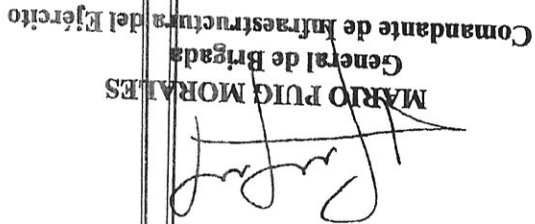 MARIO PUIG MORALES
General de Brigada
Comandante de Infraestructura del Ejército